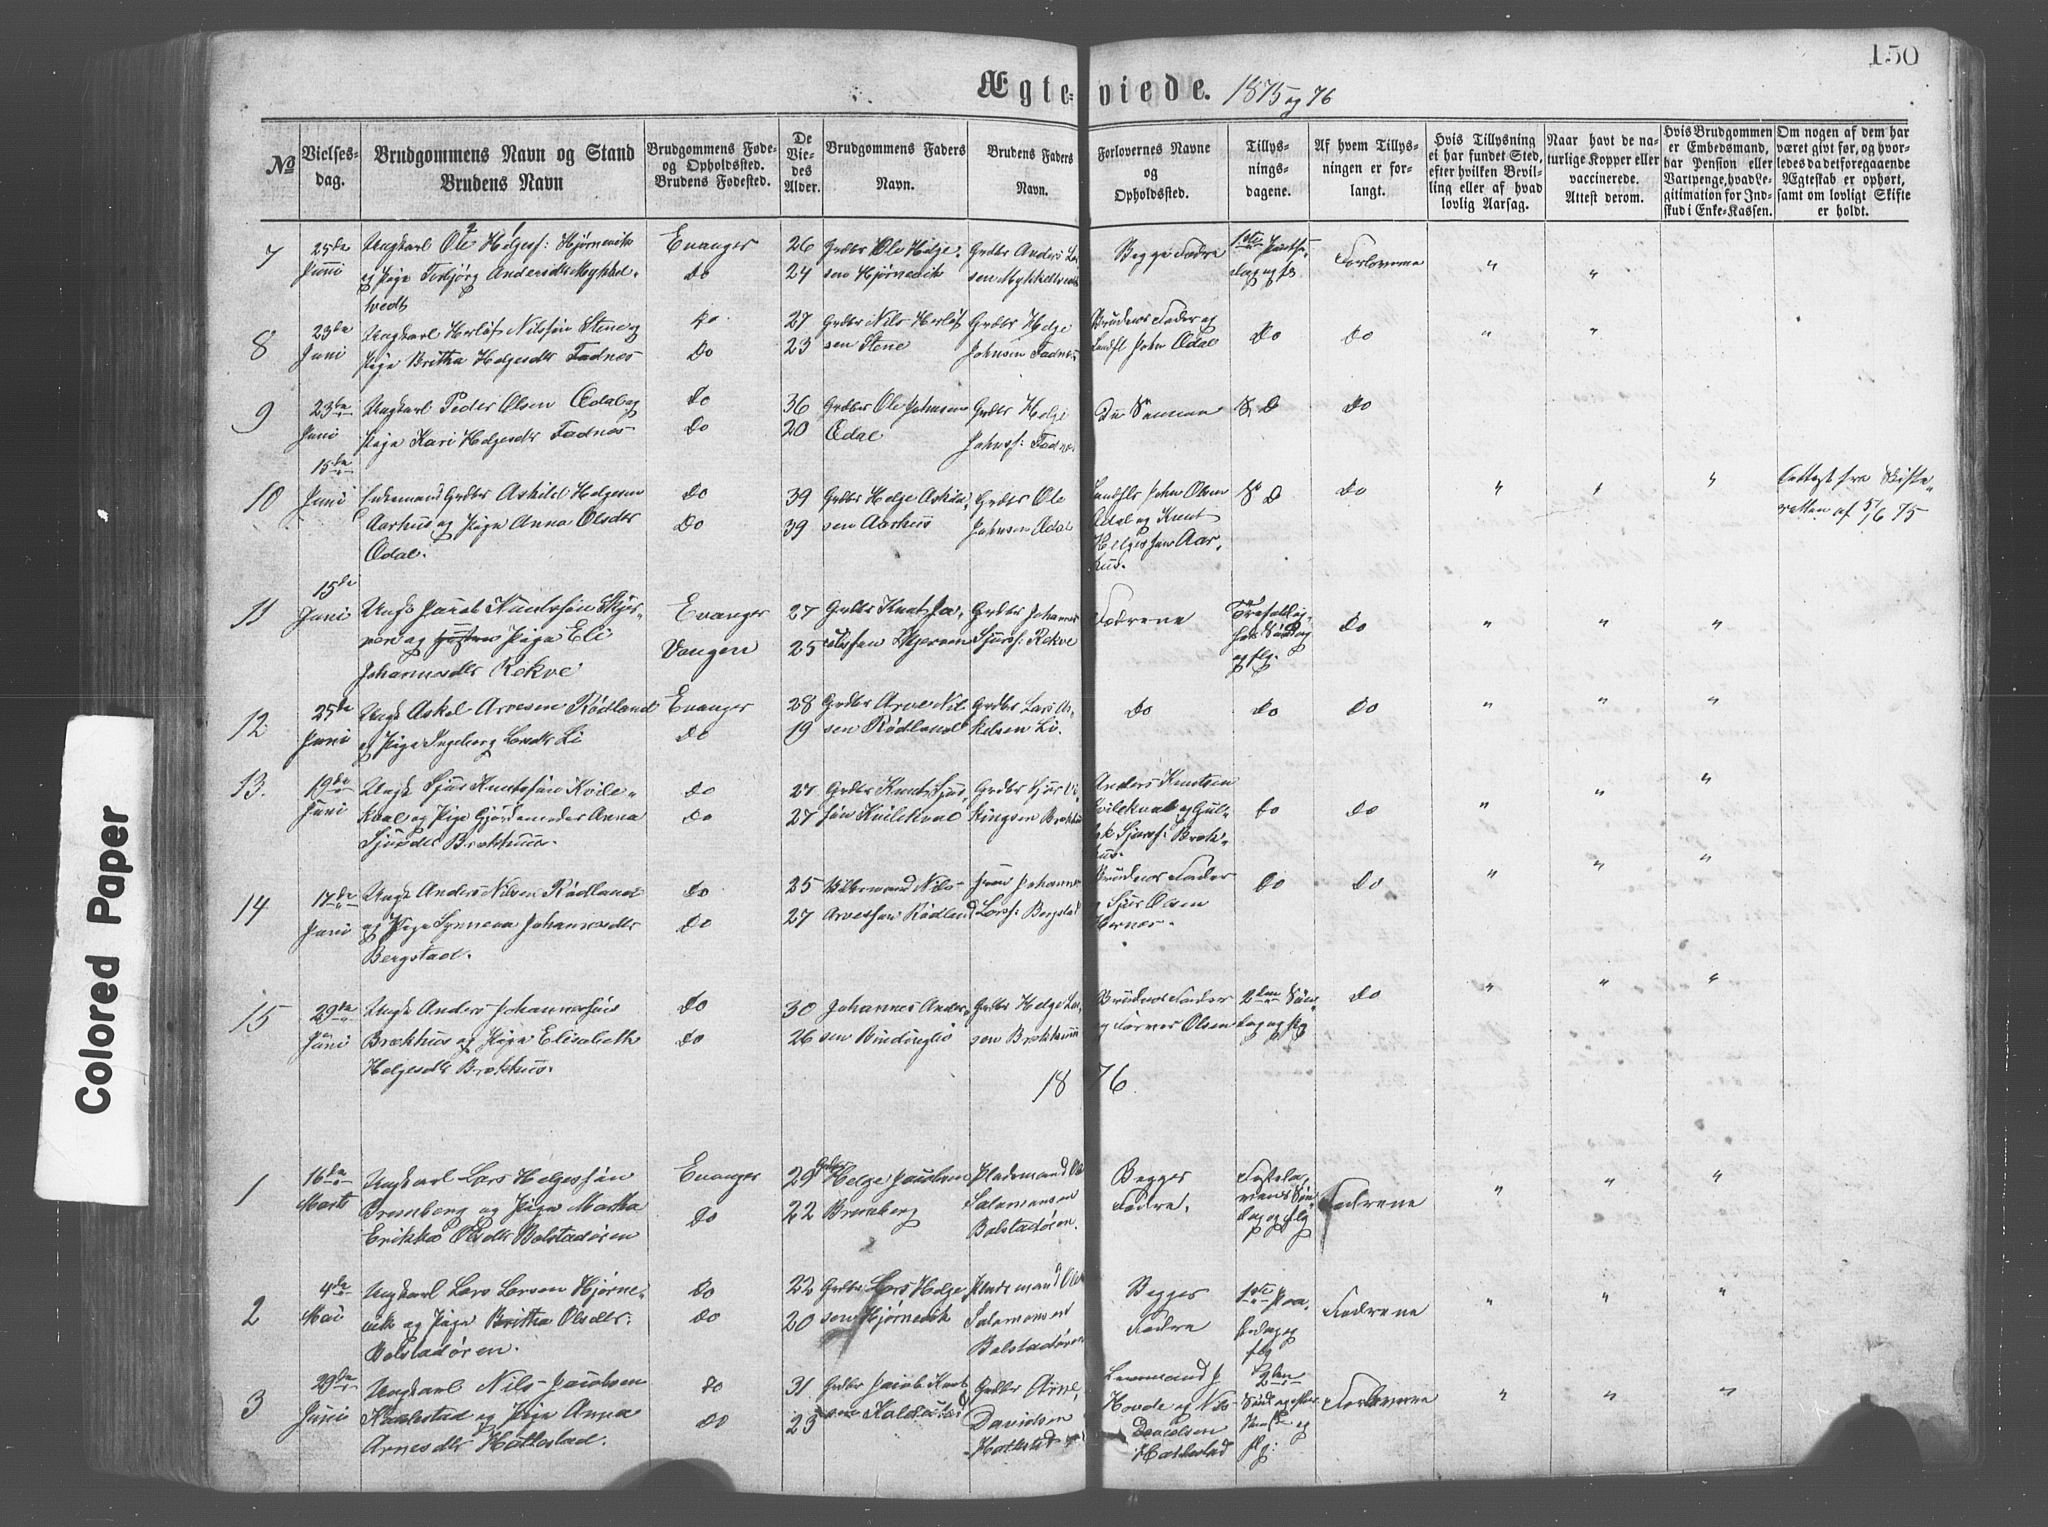 150
Ægteviede. 1875 og 76
No
Vielsesdag.
Brudgommens Navn og Stand
Brudens Navn
Brudgommens Føde- og Opholdssted.
Brudens Fødested.
De Viedes Alder.
Brudgommens Faders Navn.
Brudens Faders Navn.
Forlovernes Navne og Opholdsted.
Tillysningsdagene.
Af hvem Tillysningen er forlangt.
Hvis Tillysning ei har fundet Sted, efter hvilken Bevilling eller af hvad lovlig Aarsag.
Naar havt de naturlige Kopper eller vaccinerede. Attest derom.
Hvis Brudgommen er Embedsmand, har Pension eller Vartpenge, hvad Legitimation for Indstud i Enke-Kassen.
Om nogen af dem har været givt før, og hvorledes da det foregaaende Ægteskab er ophørt, samt om lovligt Skifte er holdt.
7 25de Juni
Ungkarl Ole Helges: Hjørnevik
og Pige Torbjørg Andersdtr Mykkeltvedt
Evanger Do
26 24
Grdbr Ole Helgesen Hjørnevik
Grdbr Anders Larsen Mykkeltvedt
Begge Fædre
Forloverne
" "
8 23de Juni
Ungkarl Herlof Nilssøn Stene og
Pige Britha Helgesdtr Fadnes
Do Do
27 23
Grdbr Nils Herlofsen Stene
Grdbr Helge Johnsen Fadnes
Brudens Fader og John Ødal
Do Do
" "
9 23de Juni
Ungkarl Peder Olsen Ødal og
Pige Kari Helgesdtr Fadnes
Do Do
36 20
Grdbr Ole Johnsen Ødal
Grdbr Helge Johnss: Fadnes
De Samme
Do
10 15de Juni
Enkemand Grdbr Askild Helgesen
Aarhus og Pige Anna Olsdtr
Ødal.
Do Do
39 39
Grdbr Helge Askildsen Aarhus
Grdbr Ole Johnsen Ødal
John Olsen Ødal og Knut Helgessøn Aarhus.
Do
" " "
Attest fra Skifteretten af 5/6 75
11 15de Juni
Ungk Jacob Knutssøn
og Pige Eli
Johannesdtr Rekve
Evanger Vangen
27 25
Grdbr Knut
Grdbr Johannes Sjurss: Rekve
Fædrene
Trefoldigheds Søndag og flg.
Do
" " "
12 25de Juni
Ungk Askel Arvesen Rødland
og Pige Ingeborg Larsdtr Li
Evanger Do
28 19
Grdbr Arve Nilsen Rødland
Grdbr Lars Askelsen Li.
Do Do Do
" " "
13. 19de Juni
Ungk Sjur Knutssøn Kvilekval
og Pige Gjordemoder Anna
Sjursdtr Brækhus.
Do Do
27 27
Grdbr Knut Sjursøn Kvilekval
Grdbr Sjur Vikingsen Brækhus
Anders Knutsen Kvilekval og Sjurss: Brækhus.
Do Do
" " "
14 17de Juni
Ungk Anders Nilsen Rødland
og Pige Synneva Johannesdtr
Bergstad.
Do Do
25 27
Nils Arvessøn Rødland
Johannes Larss: Bergstad
Brudens Fader og Sjur Olsen Hernes.
Do Do
" " "
15 29de Juni
Ungk Anders Johannessøn
Brækhus og Pige Elisabeth
Helgesdtr Brækhus.
Do Do
30 26
Johannes Andersen
Grdbr Helge Larsen Brækhus
Brudens Fader og Olsen
2den Søndag og flg
Do
" " "
1876.
1 16de Marts
Ungkarl Lars Helgessøn
Brunborg og Pige Martha
Erikka Olsdtr Bolstadøren
Evanger Do
29 22
Grdbr Helge Jacobsen Brunborg
Pladsmand Ole Salamonsen Bolstadøren.
Begges Fædre.
Fastelavens Søndag og flg
Fædrene
" " "
2 4de Mai
Ungkarl Lars Larsen Hjørnevik
og Pige Britha Olsdtr:
Bolstadøren.
Do Do
22 20
Grdbr Lars Helgesen Hjørnevik
Pladsmand Ole Salamonsen Bolstadøren
Begges Fædre
Fædrene
" " "
3 29de Juni
Ungkarl Nils Jacobsen
Kaldestad og Pige Anna
Arnesdtr Hatlestad.
Do Do
31 23
Grdbr Jacob Knutsen Kaldestad
Grdbr Arne Davidsen Hatlestad
Hovde og Nils Davidsen Hatlestad
Forloverne
" " "
Colored Paper